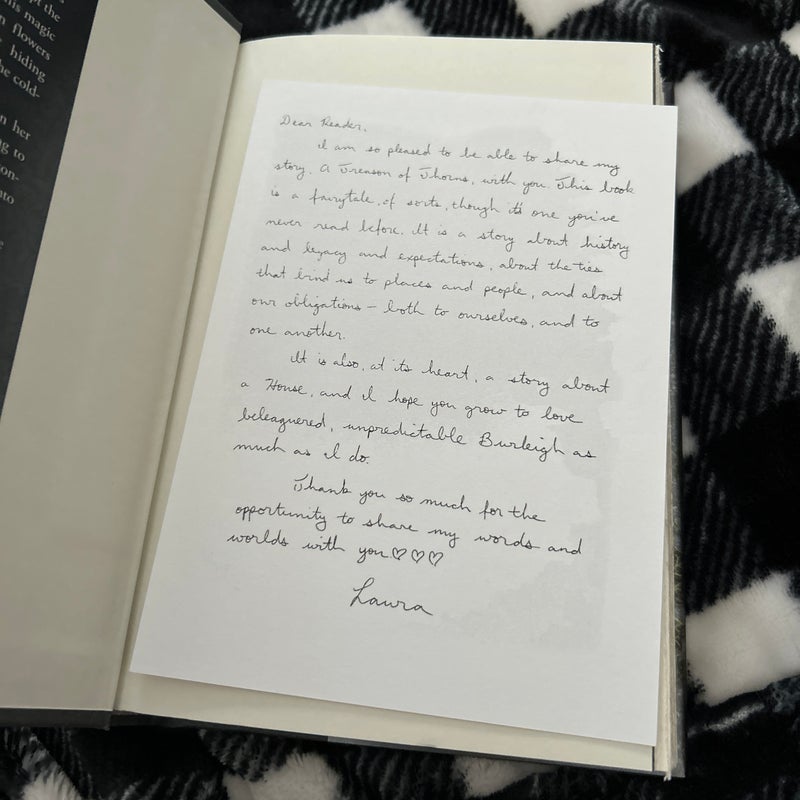 pt the
his magic
flowers
hiding
he cold-
n her
g to
on-
nto
e
Dear Reader,
I am so pleased to be able to share my
story, A Treason of Thorns, with you. This book
is a fairytale, of sorts, though it's one you've
never read before. It is a story about history
and legacy and expectations, about the ties
that bind us to places and people, and about
our obligations – both to ourselves, and to
one another.
It is also, at its heart, a story about
a House, and I hope you grow to love
beleaguered, unpredictable Burleigh as
much as I do.
Thank you so much for the
opportunity to share my words and
worlds with you♡♡♡
Laura